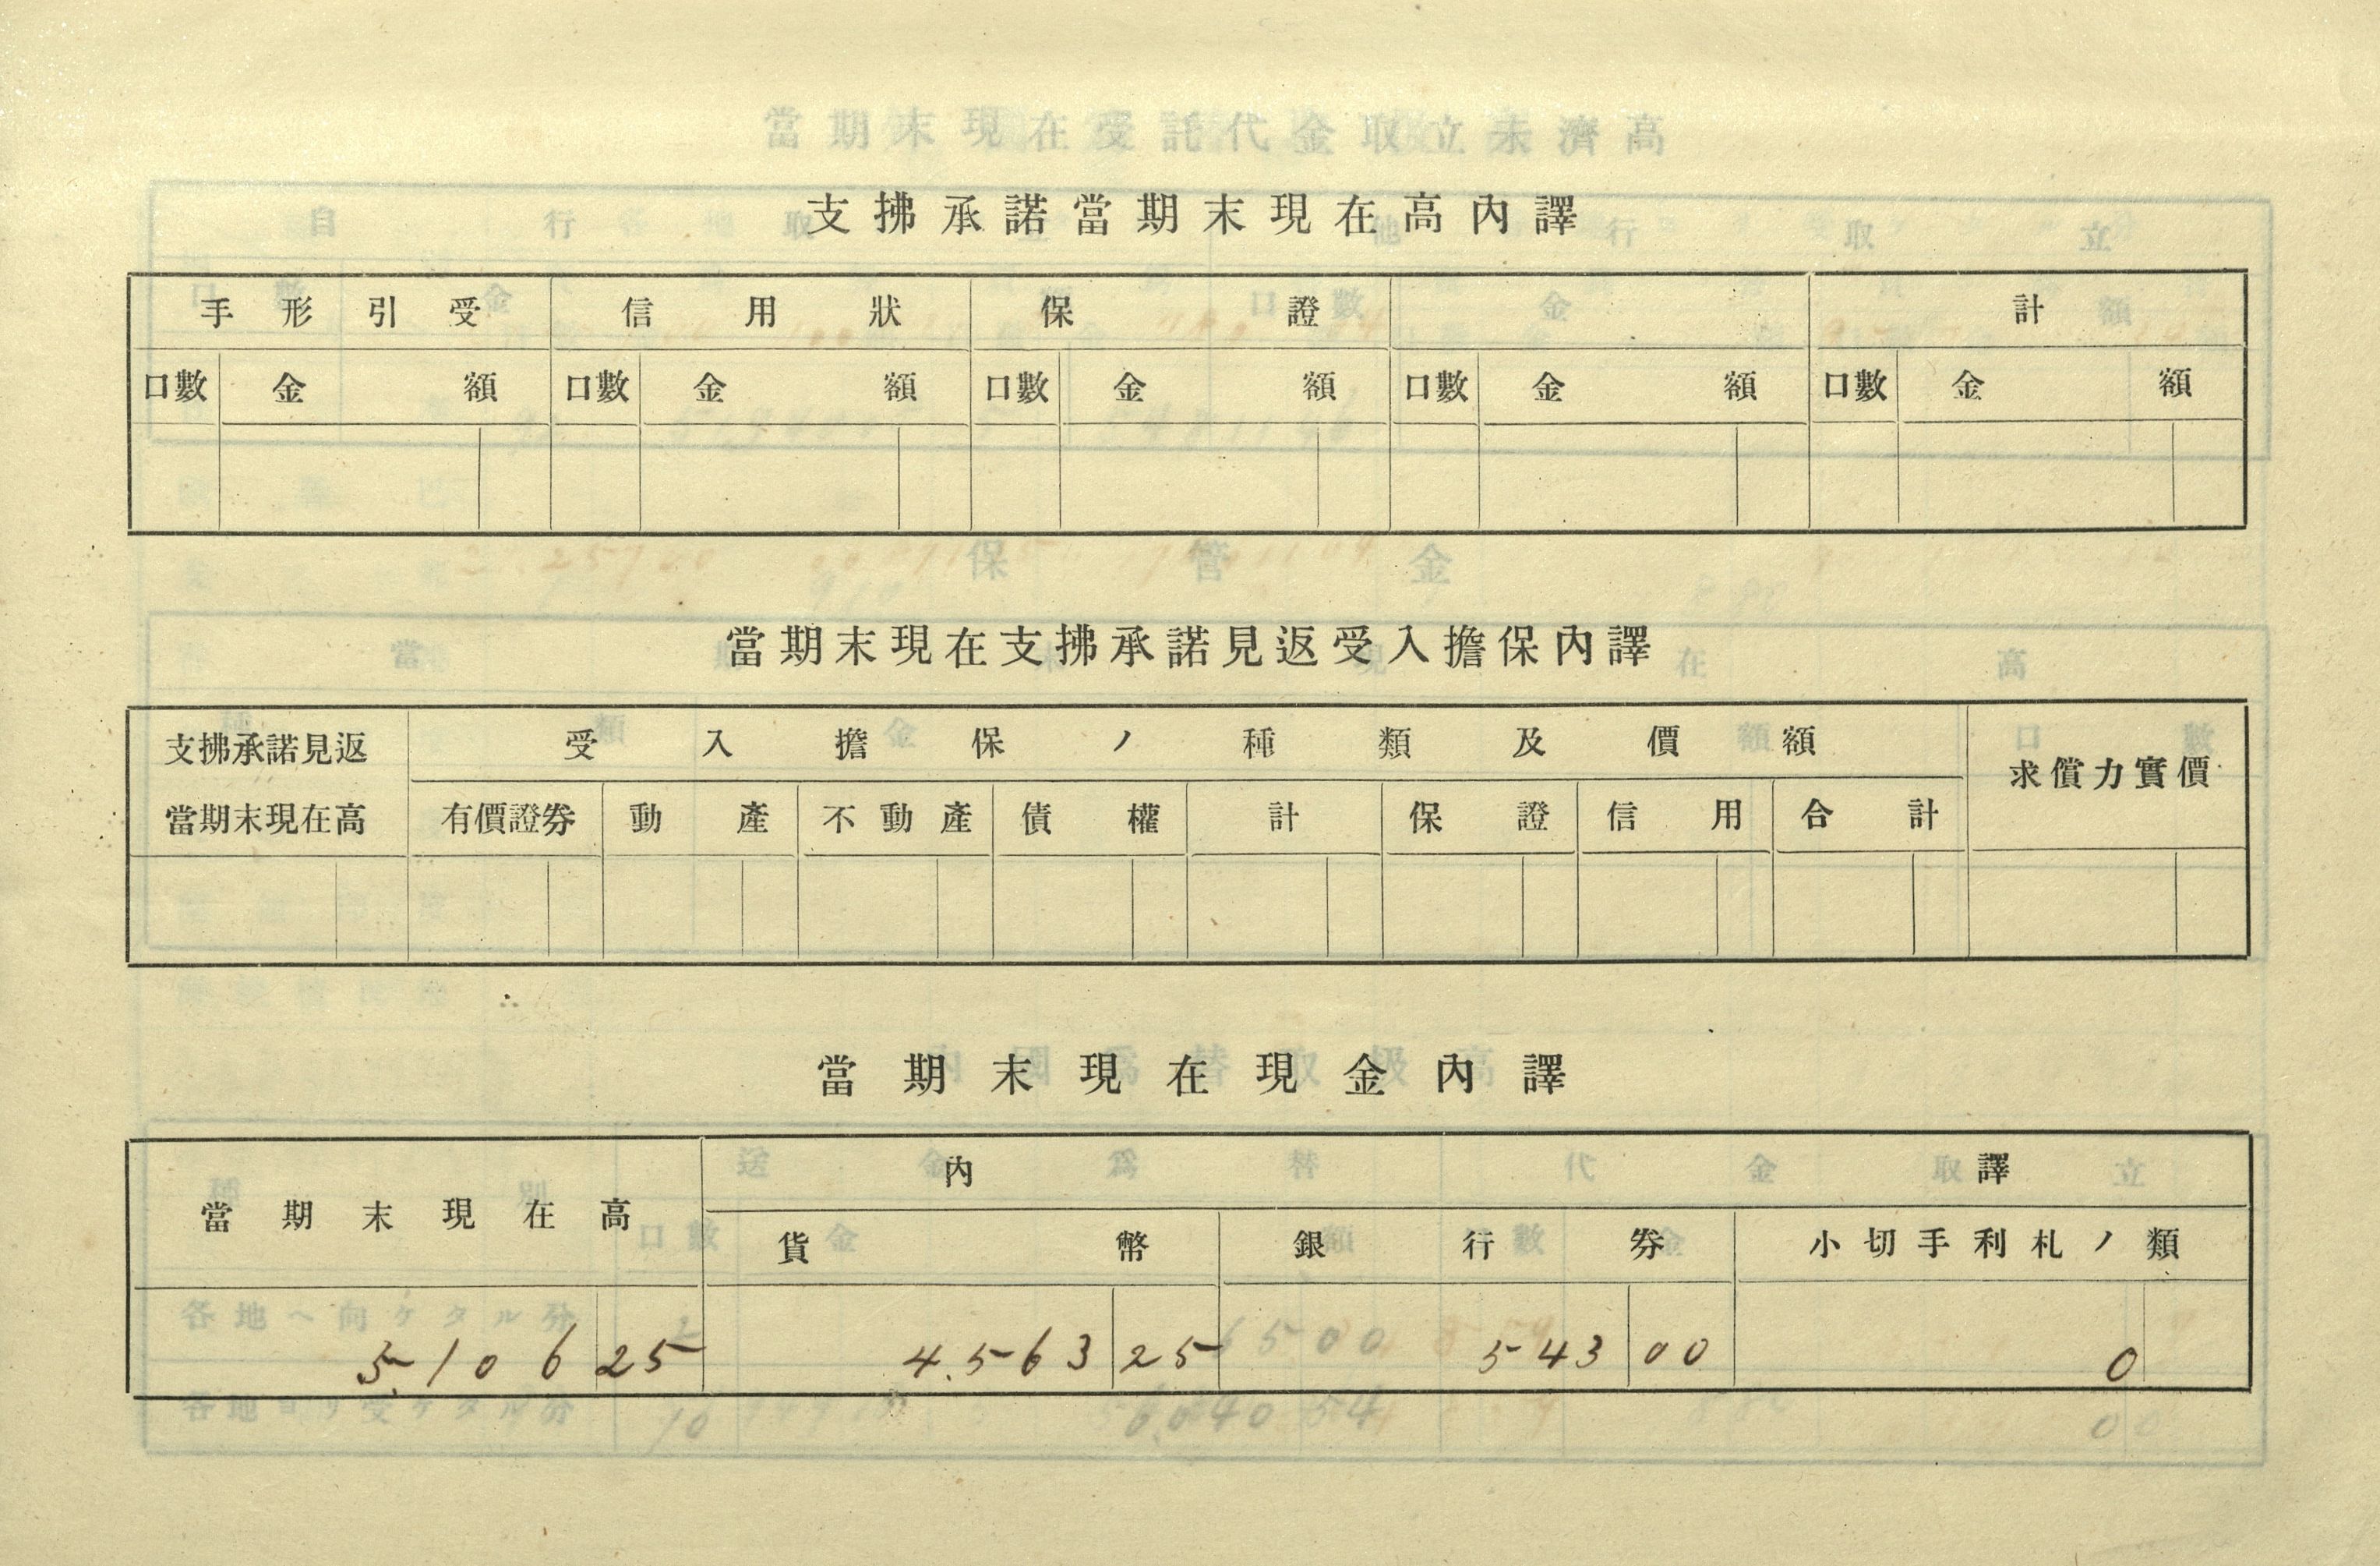 支拂承諾當期末現在高內譯
手形引受 信用狀 保證 計
口數 金額 口數 金額 口數 金額 口數 金額 口數 金額
當期末現在支拂承諾見返受入擔保內譯
支拂承諾見返當期末現在高 受入擔保ノ種類及價額 求償力實價
有價證券 動產 不動產 債權 計 保證 信用 合計
當期末現在現金內譯
當期末現在高 內譯
貨幣 銀行券 小切手利札ノ類
5,106 25 4,563 25 543 00 0